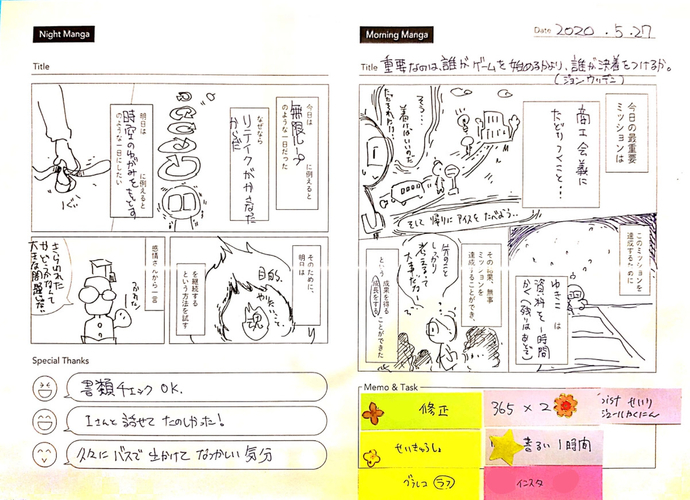 Night Manga
Title
今日は
無限ループ
に例えると
のような一日だった
なぜなら
リテイクが
からだ
明日は
時空のゆがみをもどす
に例えると
のような一日にしたい
そのために、
明日は
自分
魂
を継続する
という方法を試す
感情さんから一言
大きな問題じゃない
Special Thanks
書類チェック OK.
Iさんと話せて たのしかった！
久々に バスで 出かけて なつかしい 気分
Morning Manga
Date 2020.5.27
Title 重要なのは、誰がゲームを始めるかより、誰が決着をつけるか。
(ジョン ウッデン)
今日の最重要
ミッションは
商工会議に
たどりつくこと…
そう…
着けばいいのだ
そして 帰りに アイスを たべよう…
このミッションを
達成するために
ゆきこ は
資料を1時間
かく(残りはあとで)
その結果、無事
ミッションを
達成することができ、
しっかり
考えるって
大事だなー
という 成果を得る
成長をする ことができた
Memo & Task
修正
365 × 2
せいり
せいきゅうしょ
書るい 1時間
グラレコ ラフ
インスタ